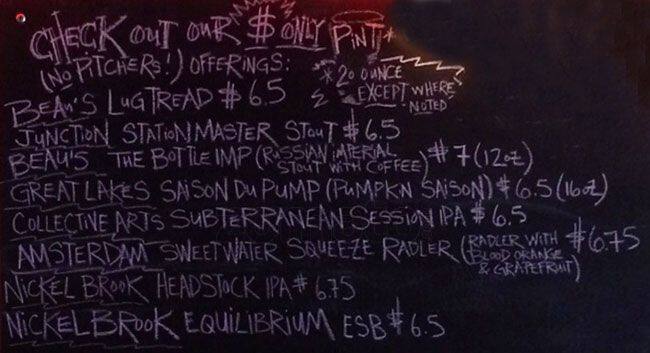 CHECK OUT OUR $ ONLY PINT*
(NO PITCHERS!) OFFERINGS:
* 20 OUNCE
EXCEPT WHERE
NOTED
BEAU'S LUGTREAD $6.5
JUNCTION STATIONMASTER STOUT $6.5
BEAU'S THE BOTTLE IMP (RUSSIAN IMPERIAL STOUT WITH COFFEE) $7 (12oz)
GREAT LAKES SAISON DU PUMP (PUMPKN SAISON) $6.5 (16oz)
COLLECTIVE ARTS SUBTERRANEAN SESSION IPA $6.5
AMSTERDAM SWEETWATER SQUEEZE RADLER (RADLER WITH BLOOD ORANGE & GRAPEFRUIT) $6.75
NICKEL BROOK HEADSTOCK IPA $6.75
NICKEL BROOK EQUILIBRIUM ESB $6.5